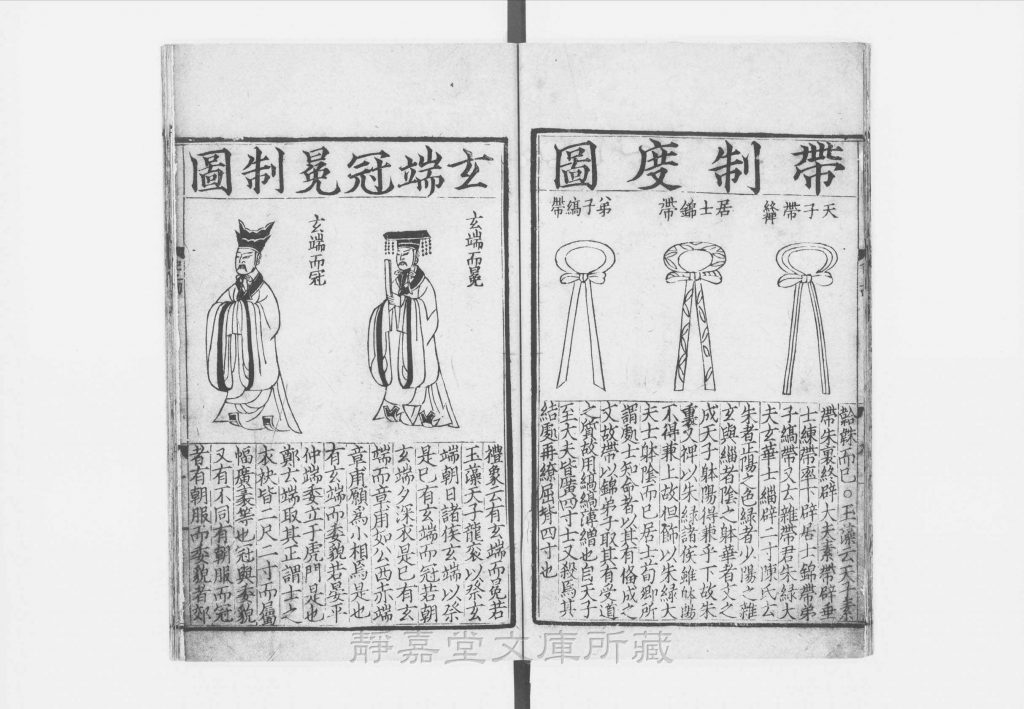 帶制度圖
天子帶終辟
居士錦帶
弟子縞帶
韐韎而已○玉藻云天子素
帶朱裏終辟大夫素帶辟垂
士練帶率下辟居士錦帶弟
子縞帶又云雜帶君朱綠大
夫玄華士緇辟二寸陳氏云
朱者正陽之色綠者少陽之雜
玄與緇者陰之躰華者文之
成天子躰陽得兼乎下故朱
裏又裨以朱綠諸侯雖躰陽
不得兼上故但飾以朱綠大
夫士躰陰而已居士荀卿所
謂處士知命者以其有備成之
文故帶以錦弟子取其有受道
之質故用縞縞薄繒也自天子
至大夫皆廣四寸士又殺焉其
結處再繚屈皆四寸也
玄端冠冕制圖
玄端而冕
玄端而冠
禮象云有玄端而冕若
玉藻天子龍袞以祭玄
端朝日諸侯玄端以祭
是巳有玄端而冠若朝
玄端夕深衣是巳有玄
端而章甫如公西赤端
章甫願為小相焉是也
有玄端而委貌若晏平
仲端委立于虎門是也
鄭云端取其正謂士之
衣袂皆二尺二寸而屬
幅廣袤等也冠與委貌
又有不同有朝服而冠
者有朝服而委貌者郊
靜嘉堂文庫所藏